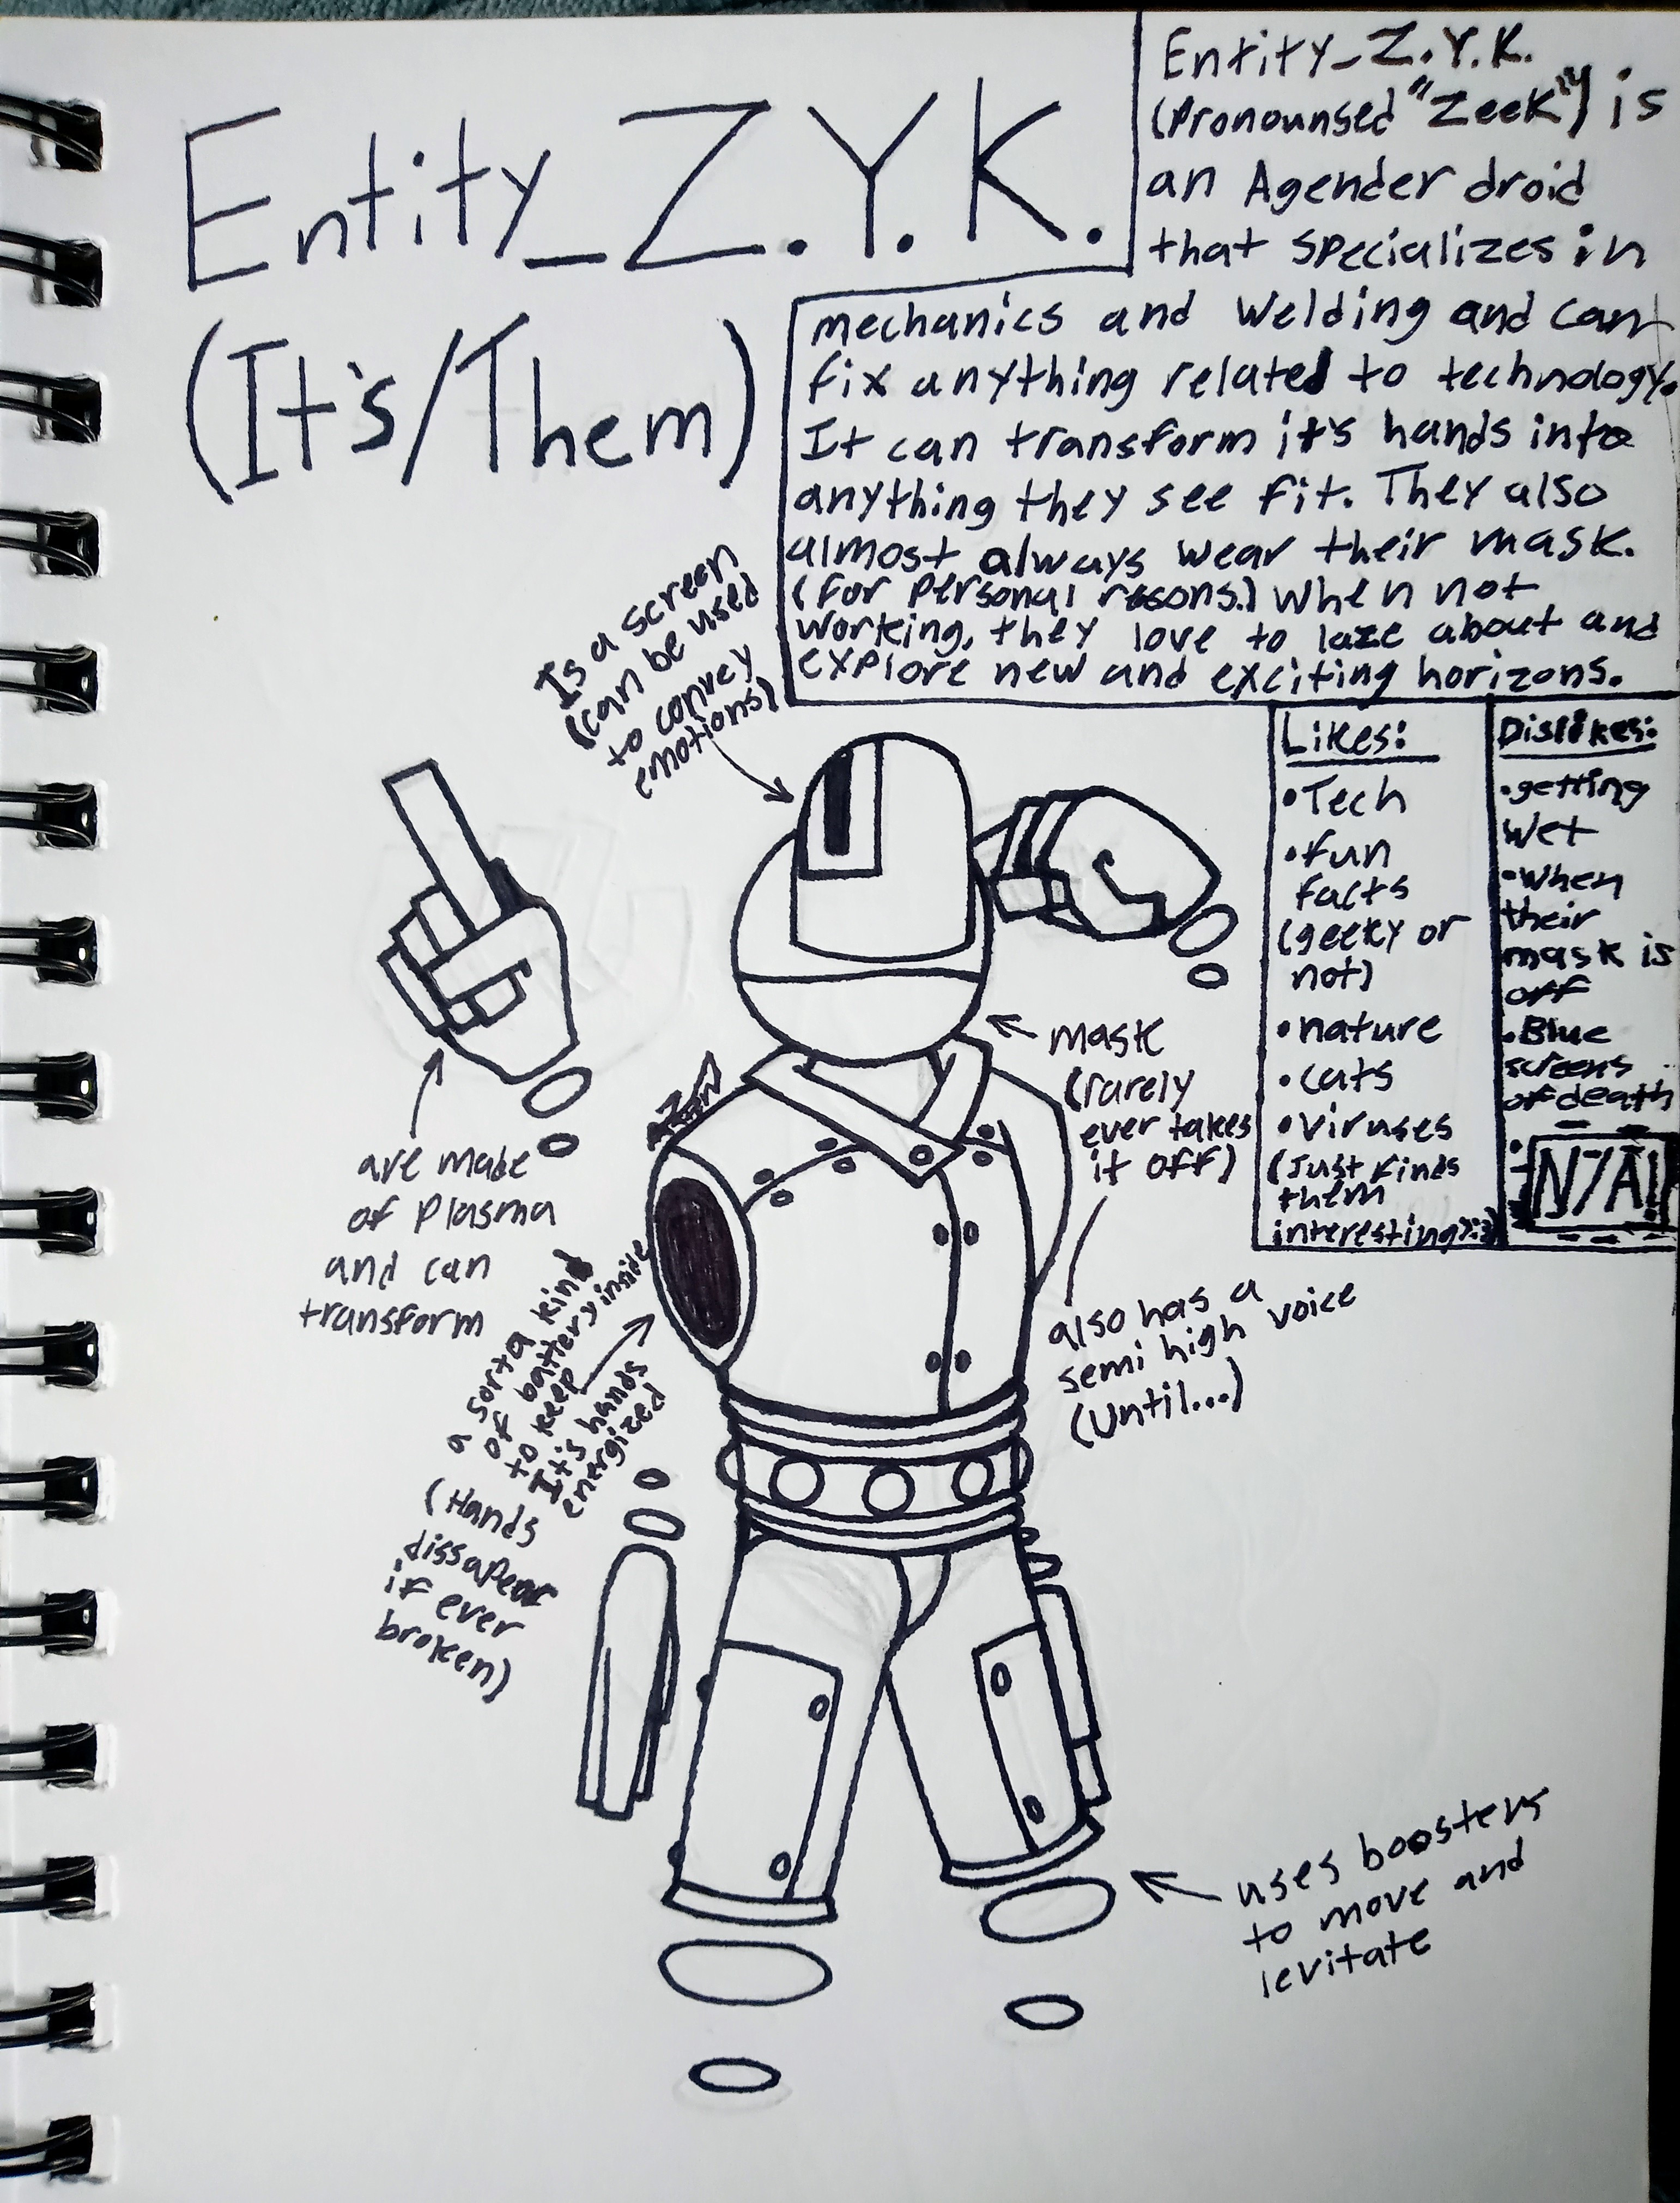 Entity_Z.Y.K.
(It's/Them)
Entity_Z.Y.K.
(Pronounsed "Zeek") is
an Agender droid
that specializes in
mechanics and welding and can
fix anything related to technology.
It can transform it's hands into
anything they see fit. They also
almost always wear their mask.
(for personal resons.) When not
working, they love to laze about and
explore new and exciting horizons.
Likes:
•Tech
•fun
facts
(geeky or
not)
•nature
•cats
•viruses
(Just finds
them
interesting)
Dislikes:
•getting
wet
•When
their
mask is
off
•Blue
screens
of death
N/A!
Is a screen
(can be used
to convey
emotions)
mask
(rarely
ever takes
it off)
also has a
semi high voice
(Until...)
are made
of plasma
and can
transform
a sorta kind
of battery inside
to keep
It's hands
energized
(Hands
dissapear
if ever
broken)
uses boosters
to move and
levitate